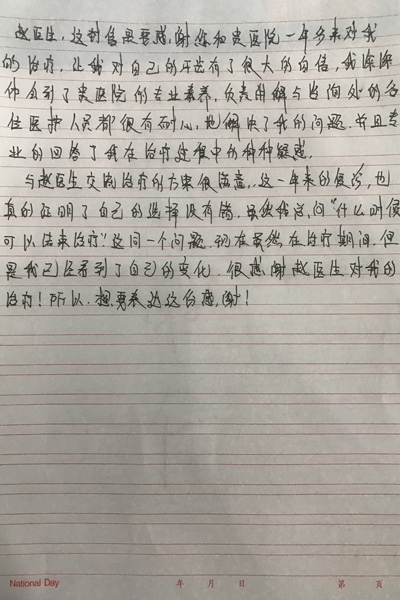 赵医生，这封信是要感谢您和贵医院一年多来对我
的治疗，让我对自己的牙齿有了很大的自信，我深深
体会到了贵医院的专业素养，负责的解与咨询处的各
位医护人员都很有耐心，地解决了我的问题，并且专
业的回答了我在治疗过程中的种种疑惑。
与赵医生交流治疗的方案很满意，这一年来的复诊，也
真的证明了自己的选择没有错，虽然我总问“什么时候
可以结束治疗”这同一个问题，现在虽然在治疗期间，但
是我已经看到了自己的变化，很感谢赵医生对我的
治疗！所以，想要表达这份感谢！
National Day 年 月 日 第 页